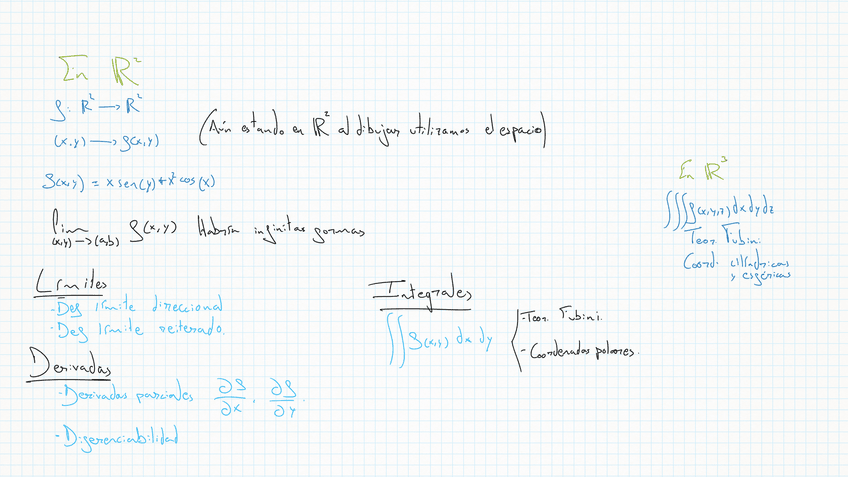 En ℝ²
f: ℝ² → ℝ²
(x,y) → f(x,y)
(Aún estando en ℝ² al dibujar utilizamos el espacio)
f(x,y) = x sen(y) + x² cos(x)
lim (x,y)→(a,b) f(x,y) Habría infinitas formas
Límites
- Def límite direccional
- Def límite reiterado.
Derivadas
- Derivadas parciales ∂f/∂x, ∂f/∂y.
- Diferenciabilidad
Integrales
∬ f(x,y) dx dy
- Teor. Fubini.
- Coordenadas polares.
En ℝ³
∭ f(x,y,z) dx dy dz
Teor. Fubini
Coord. cilíndricas
y esféricas